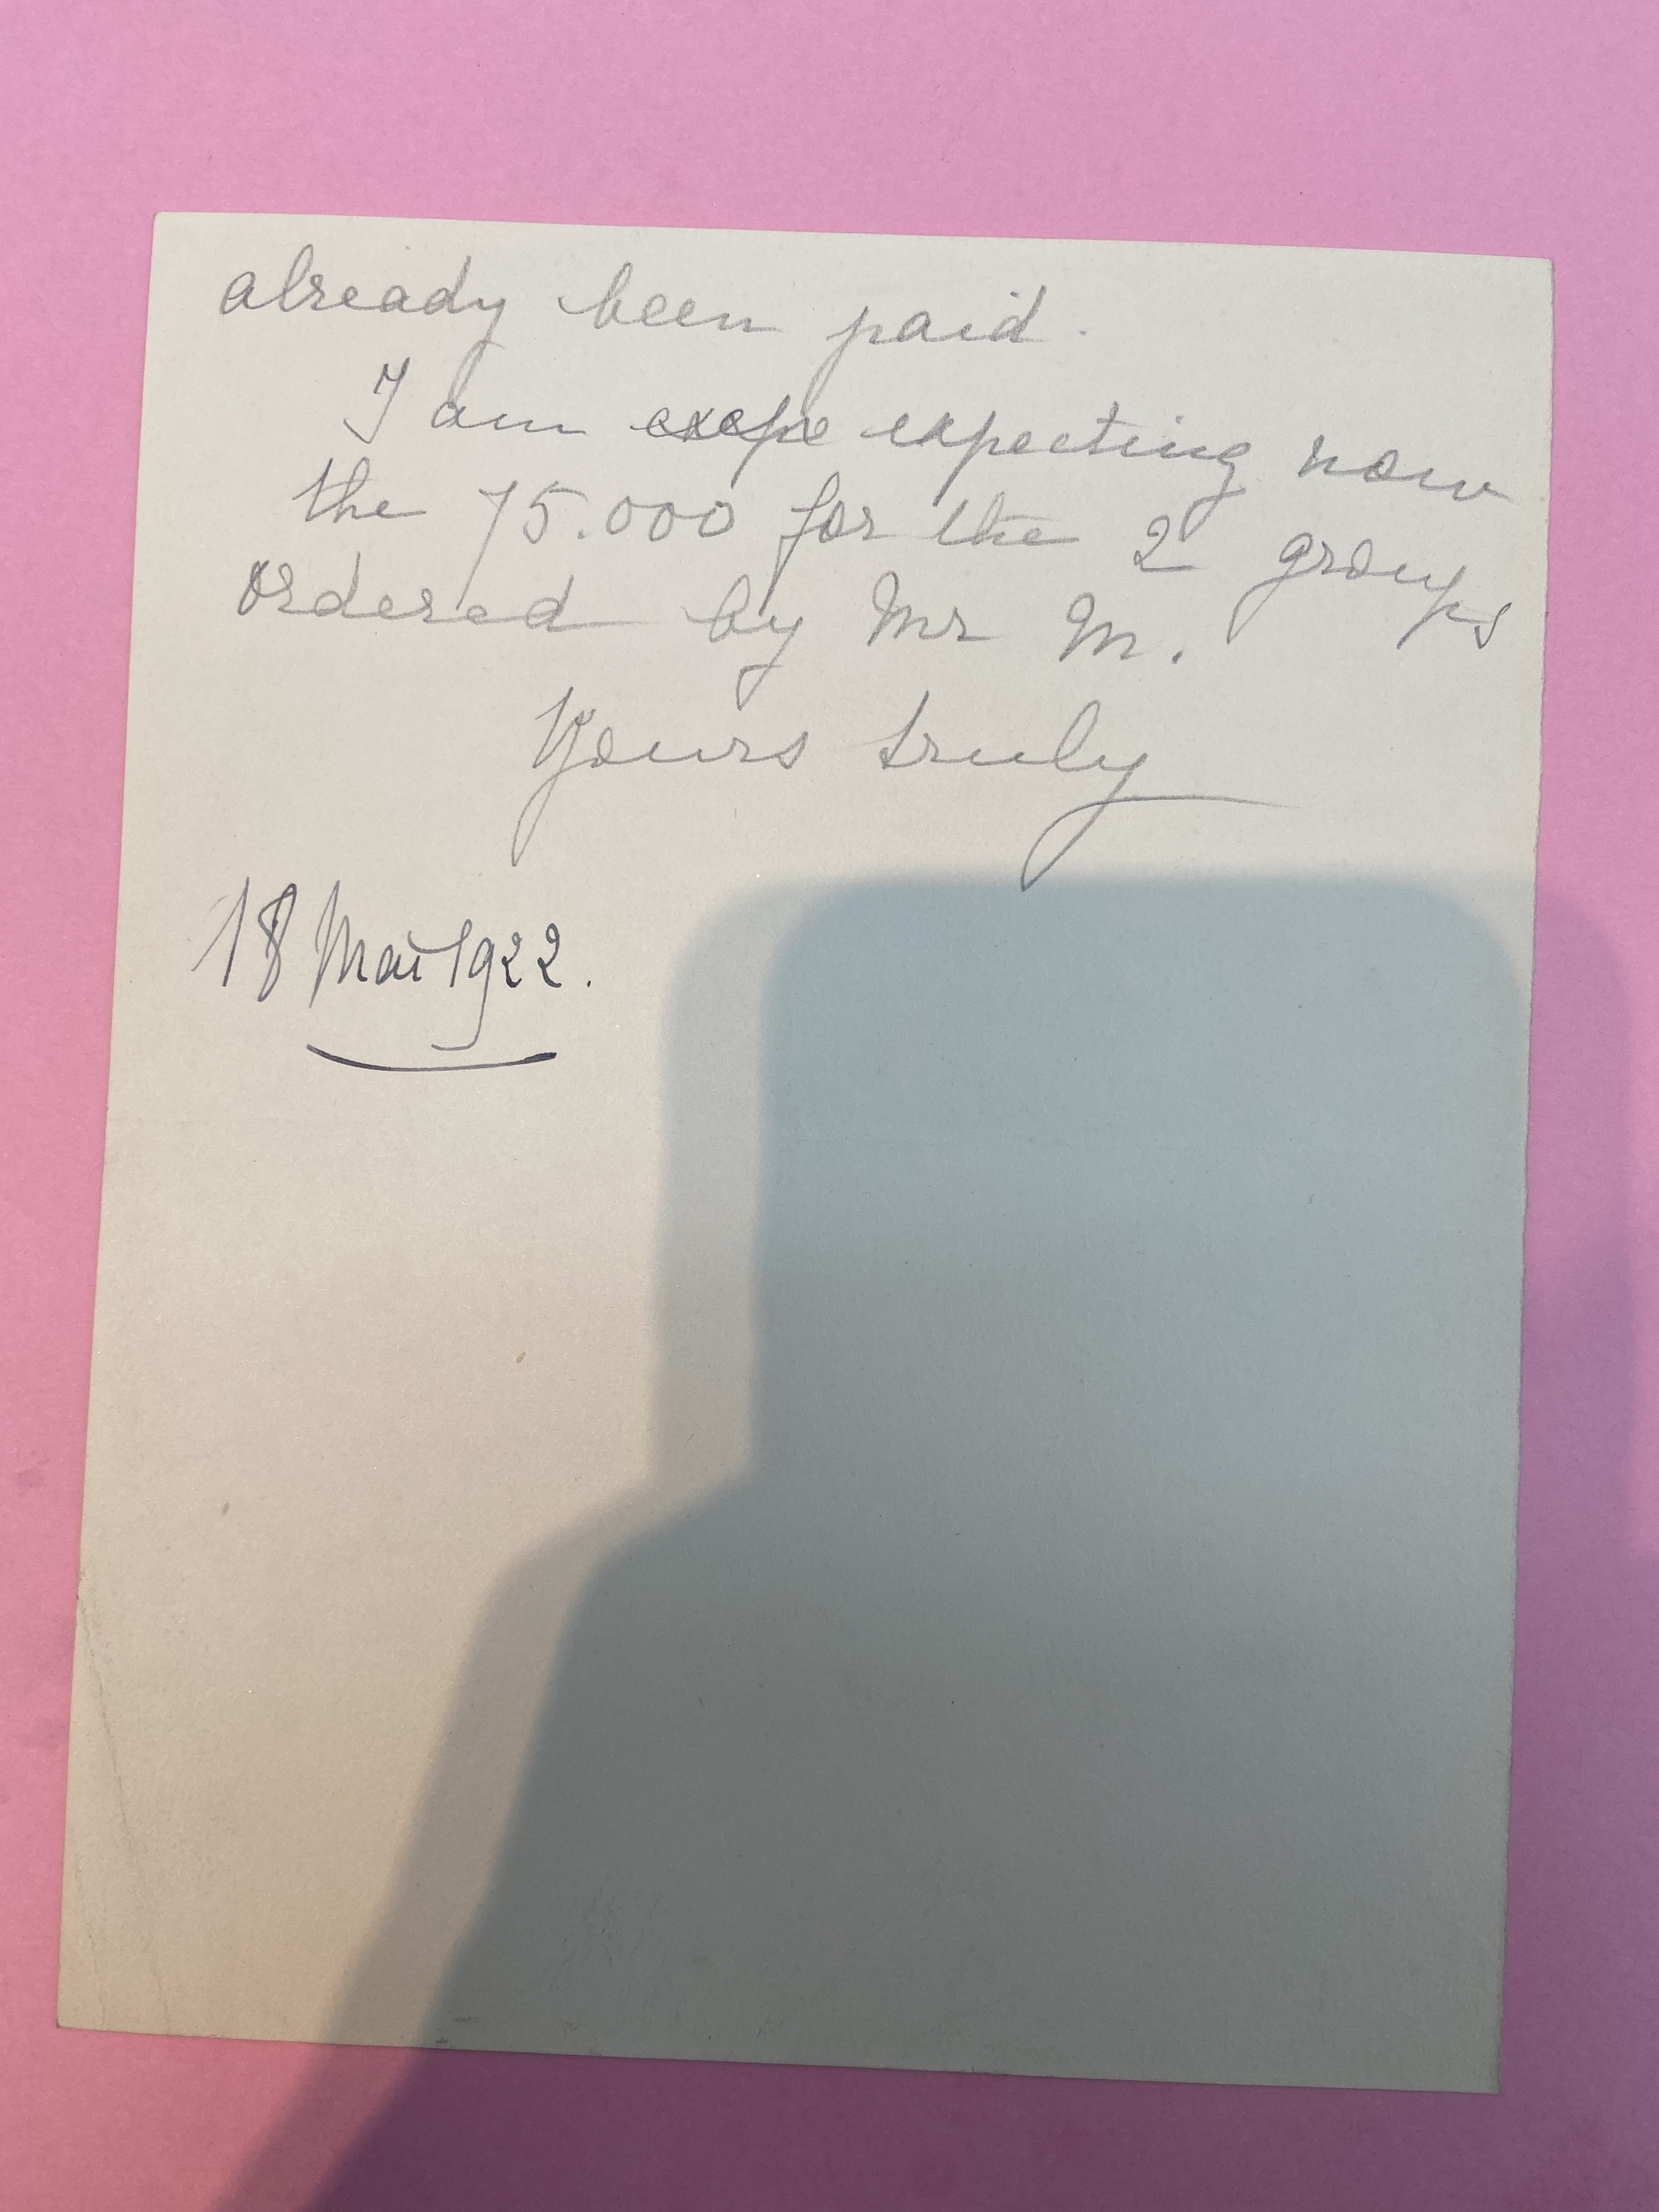 already been paid.
I am exepe expecting now
the 75.000 for the 2 groups
ordered by Mr M.
Yours truly
18 Mai 1922.